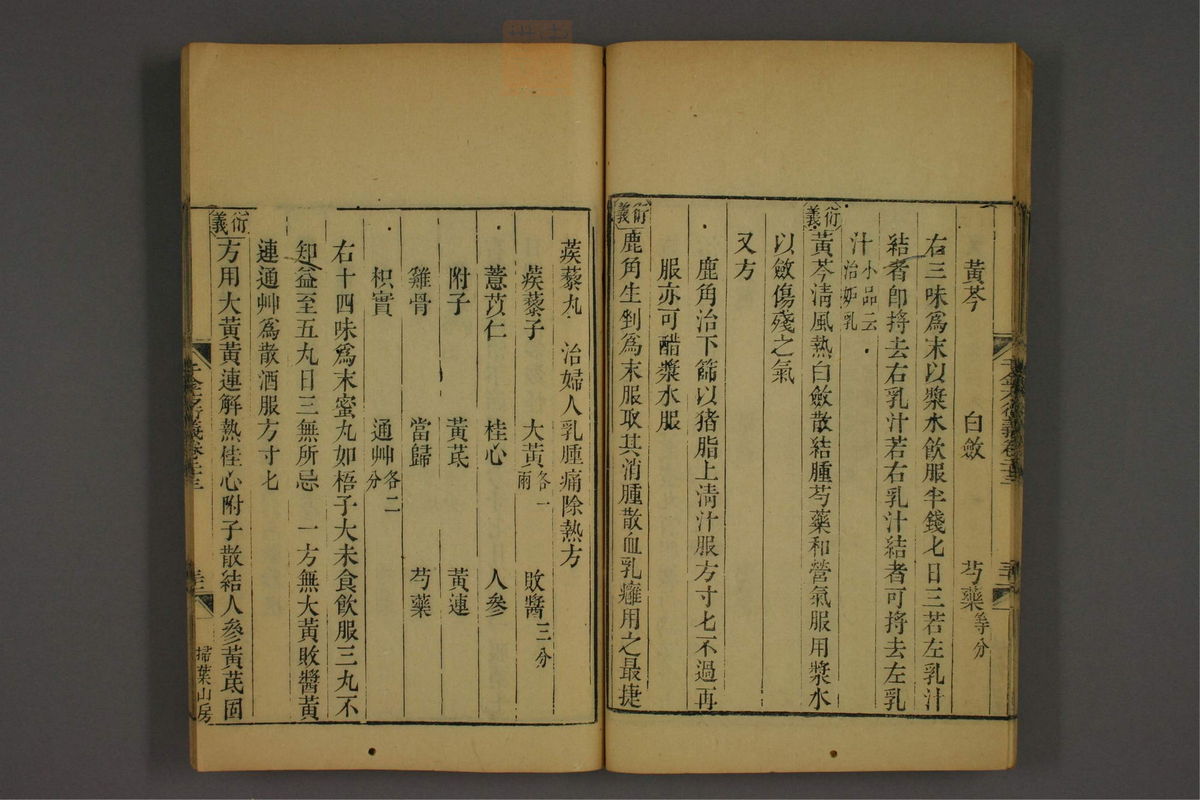 黃芩 白斂 芍藥等分
右三味為末以漿水飲服半錢匕日三若左乳汁
結者即捋去右乳汁若右乳汁結者可捋去左乳
汁小品云治妬乳
衍義
黃芩淸風熱白斂散結腫芍藥和營氣服用漿水
以斂傷殘之氣
又方
鹿角治下篩以猪脂上淸汁服方寸匕不過再
服亦可醋漿水服
衍義
鹿角生剉為末服取其消腫散血乳癰用之最捷
蒺藜丸 治婦人乳腫痛除熱方
蒺藜子 大黃各一兩 敗醬三分
薏苡仁 桂心 人參
附子 黃芪 黃連
雞骨 當歸 芍藥
枳實 通艸各二分
右十四味為末蜜丸如梧子大未食飲服三丸不
知益至五丸日三無所忌 一方無大黃敗醬黃
連通艸為散酒服方寸匕
衍義
方用大黃黃連解熱桂心附子散結人參黃芪固
掃葉山房